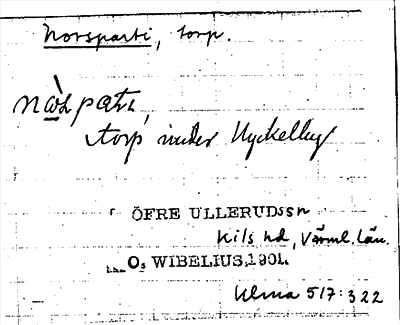 Norsparti, torp.
torp under Nyckelby
ÖFRE ULLERUDSSN
Kils hd, Värml. Län.
O. WIBELIUS, 1901.
Ulma 517:322